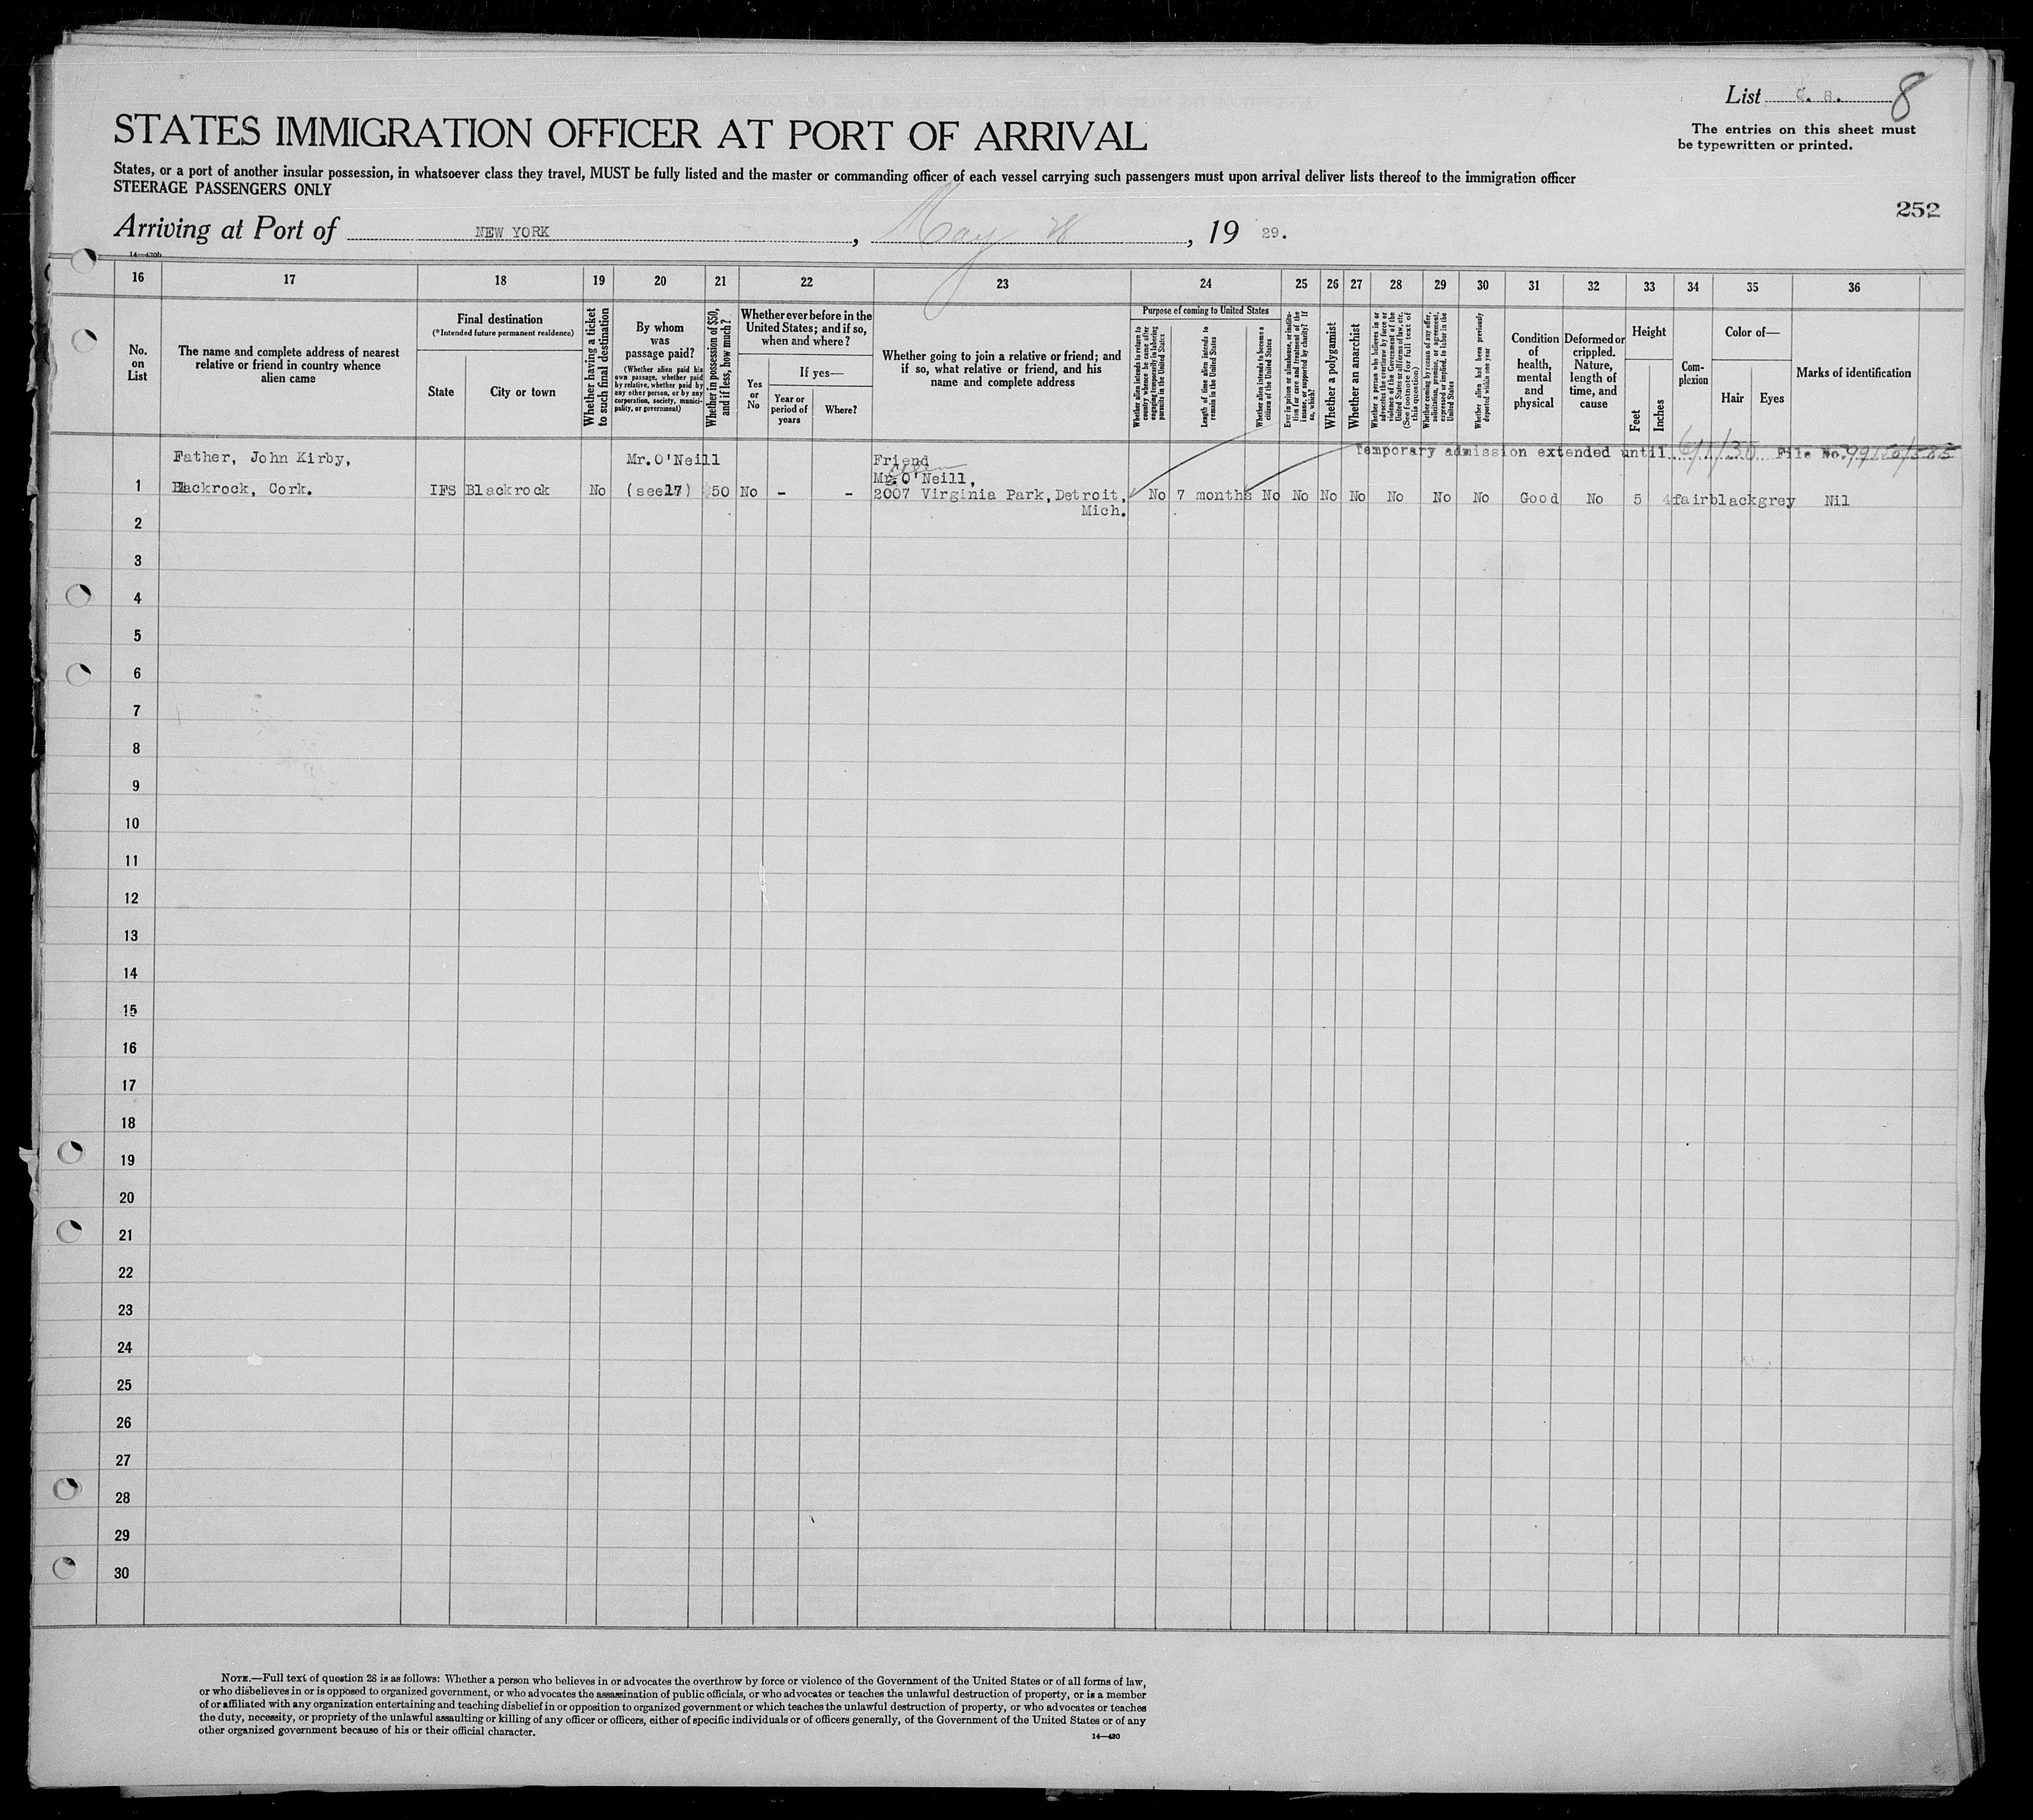 List C. 8. 8
The entries on this sheet must
be typewritten or printed.
STATES IMMIGRATION OFFICER AT PORT OF ARRIVAL
States, or a port of another insular possession, in whatsoever class they travel, MUST be fully listed and the master or commanding officer of each vessel carrying such passengers must upon arrival deliver lists thereof to the immigration officer
STEERAGE PASSENGERS ONLY
252
Arriving at Port of NEW YORK, May 28, 19 29.
14—430b
16 17 18 19 20 21 22 23 24 25 26 27 28 29 30 31 32 33 34 35 36
No.
on
List
The name and complete address of nearest
relative or friend in country whence
alien came
Final destination
(*Intended future permanent residence)
State
City or town
Whether having a ticket
to such final destination
By whom
was
passage paid?
(Whether alien paid his
own passage, whether paid
by relative, whether paid by
any other person, or by any
corporation, society, munici-
pality, or government)
Whether in possession of $50,
and if less, how much?
Whether ever before in the
United States; and if so,
when and where?
Yes
or
No
If yes—
Year or
period of
years
Where?
Whether going to join a relative or friend; and
if so, what relative or friend, and his
name and complete address
Purpose of coming to United States
Whether alien intends to return to
country whence he came after
engaging temporarily in laboring
pursuits in the United States
Length of time alien intends to
remain in the United States
Whether alien intends to become a
citizen of the United States
Ever in prison or almshouse, or institu-
tion for care and treatment of the
insane, or supported by charity? If
so, which?
Whether a polygamist
Whether an anarchist
Whether a person who believes in or
advocates the overthrow by force or
violence of the Government of the
United States or all forms of law, etc.
(See footnote for full text of
this question)
Whether coming by reason of any offer,
solicitation, promise, or agreement,
expressed or implied, to labor in the
United States
Whether alien had been previously
deported within one year
Condition
of
health,
mental
and
physical
Deformed or
crippled.
Nature,
length of
time, and
cause
Height
Feet
Inches
Com-
plexion
Color of—
Hair
Eyes
Marks of identification
Temporary admission extended until 6/1/30 File No.
Father, John Kirby, Mr. O'Neill Friend
Mr. O'Neill,
1 Blackrock, Cork. IFS Blackrock No (see17) 50 No - - 2007 Virginia Park, Detroit, No 7 months No No No No No No No Good No 5 4 fair black grey Nil
Mich.
2
3
4
5
6
7
8
9
10
11
12
13
14
15
16
17
18
19
20
21
22
23
24
25
26
27
28
29
30
NOTE.—Full text of question 28 is as follows: Whether a person who believes in or advocates the overthrow by force or violence of the Government of the United States or of all forms of law,
or who disbelieves in or is opposed to organized government, or who advocates the assassination of public officials, or who advocates or teaches the unlawful destruction of property, or is a member
of or affiliated with any organization entertaining and teaching disbelief in or opposition to organized government or which teaches the unlawful destruction of property, or who advocates or teaches
the duty, necessity, or propriety of the unlawful assaulting or killing of any officer or officers, either of specific individuals or of officers generally, of the Government of the United States or of any
other organized government because of his or their official character.
14—430